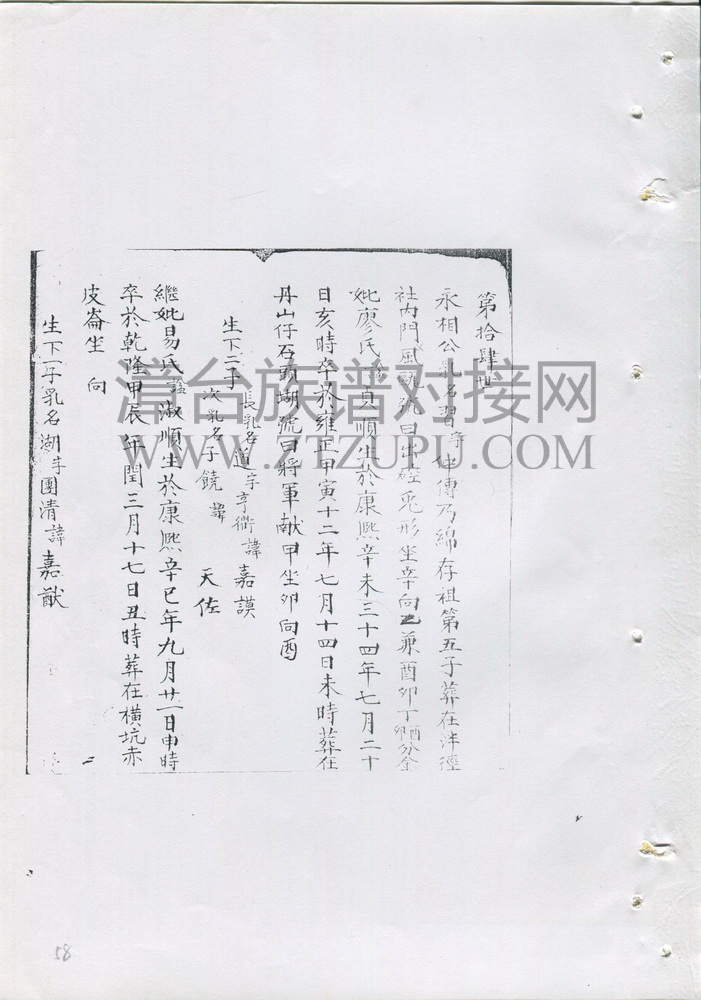 第拾肆世
永相公乳名習字仲傳乃綿存祖第五子葬在洋徑
社內門風 號曰出 兔形坐辛向乙兼酉卯丁酉分金
妣廖氏 貞順生於康熙辛未三十四年七月二十
日亥時卒於雍正甲寅十二年七月十四日未時葬在
丹山仔石頭坳號曰將軍献甲坐卯向酉
生下二子
長乳名道字亨衢諱嘉謨
次乳名子饒諱天佐
繼妣易氏諡淑順生於康熙辛巳年九月廿一日申時
卒於乾隆甲辰年閏三月十七日丑時葬在橫坑赤
皮崙坐 向
生下一子乳名湖字團清諱嘉猷
清台族谱对接网
WWW.ZTZUPU.COM
58